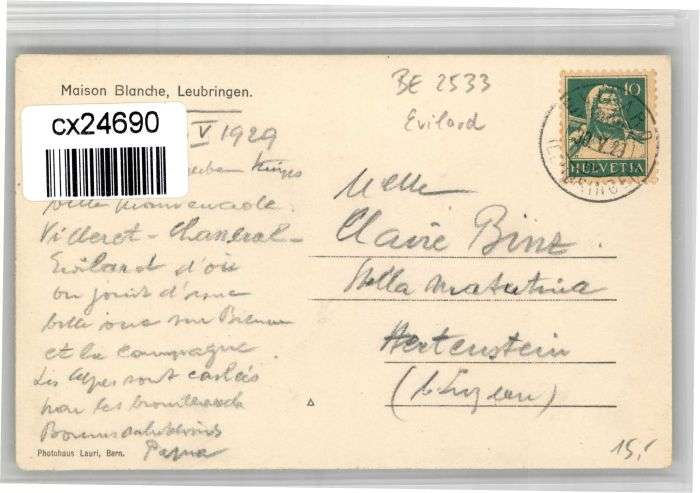 Maison Blanche, Leubringen.
cx24690
V 1929
belle promenade
Villeret - Chasseral -
Evilard d'où
on jouit d'une
belle vue sur Bienne
et la campagne
Les Alpes sont cachés
par les brouillards
Papa
Photohaus Lauri, Bern.
BE 2533
Evilard
10
HELVETIA
Melle
Claire Binz
Stella Matutina
Hertenstein
(b. Luzern)
15,-